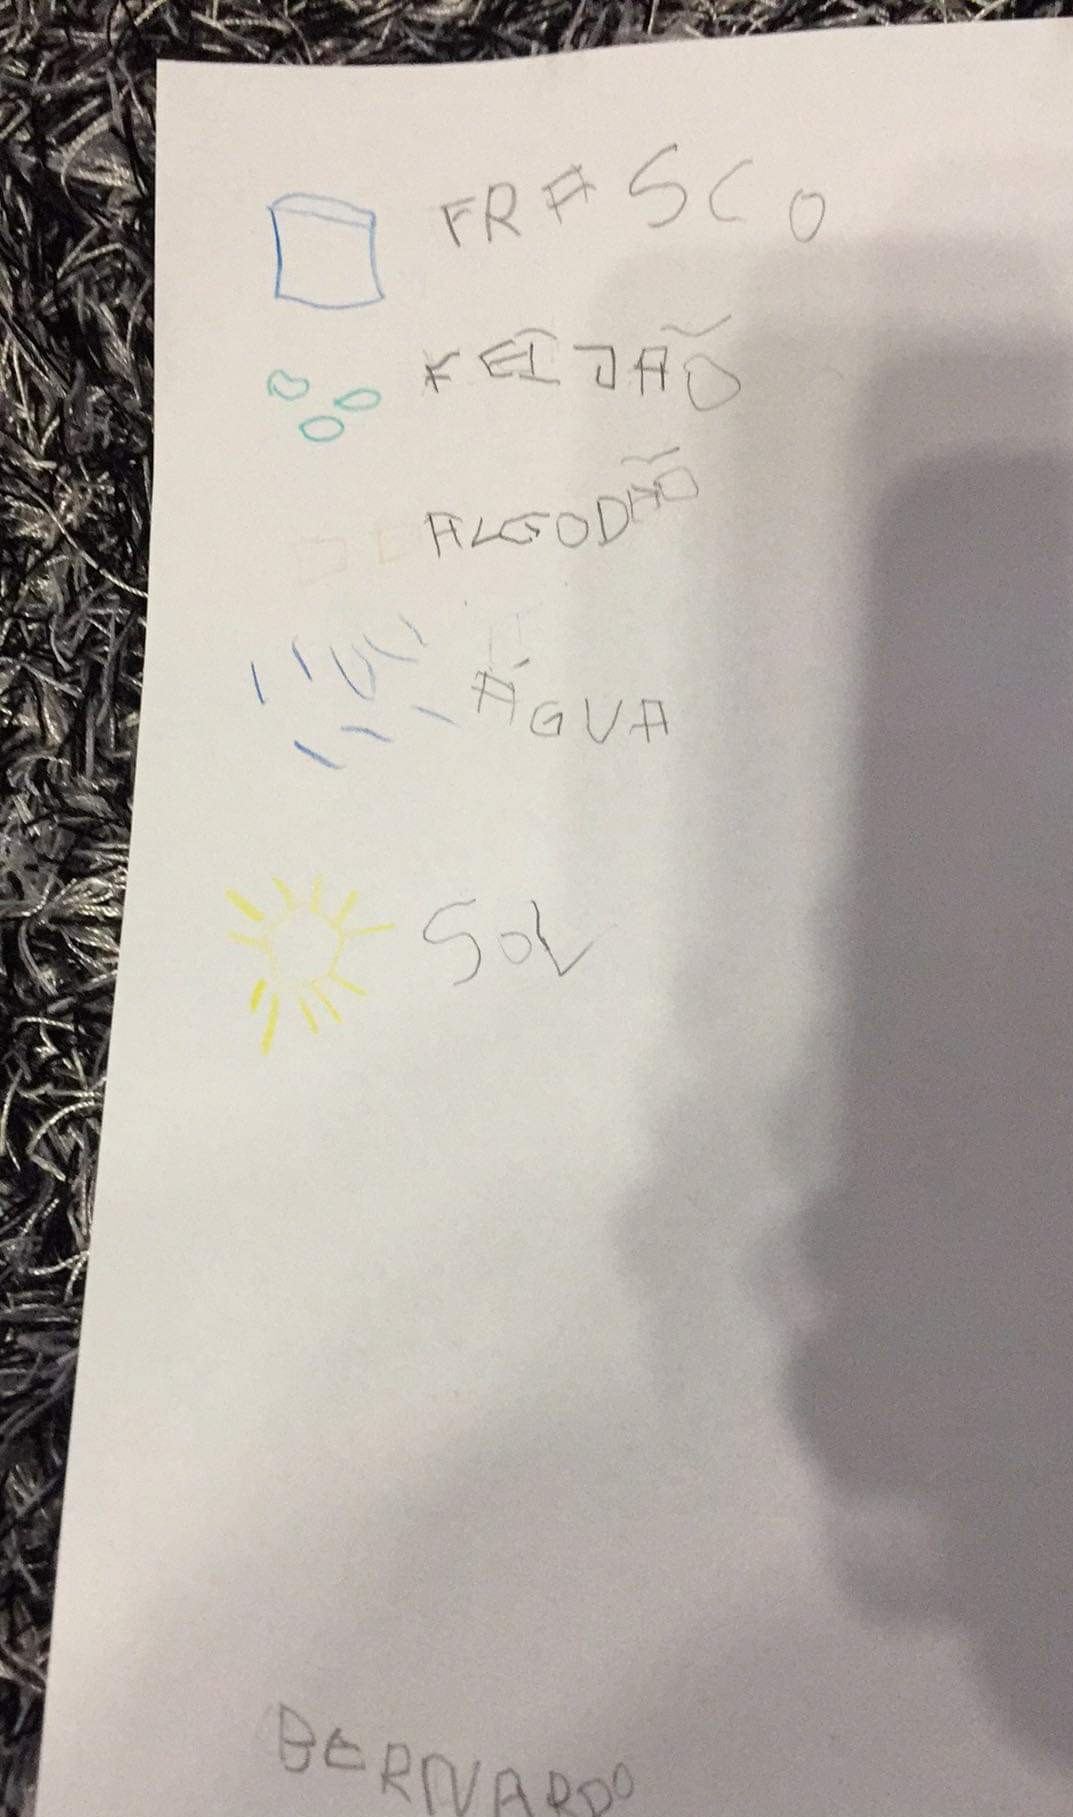 FRASCO
FEIJÃO
ALGODÃO
ÁGUA
SOL
BERNARDO